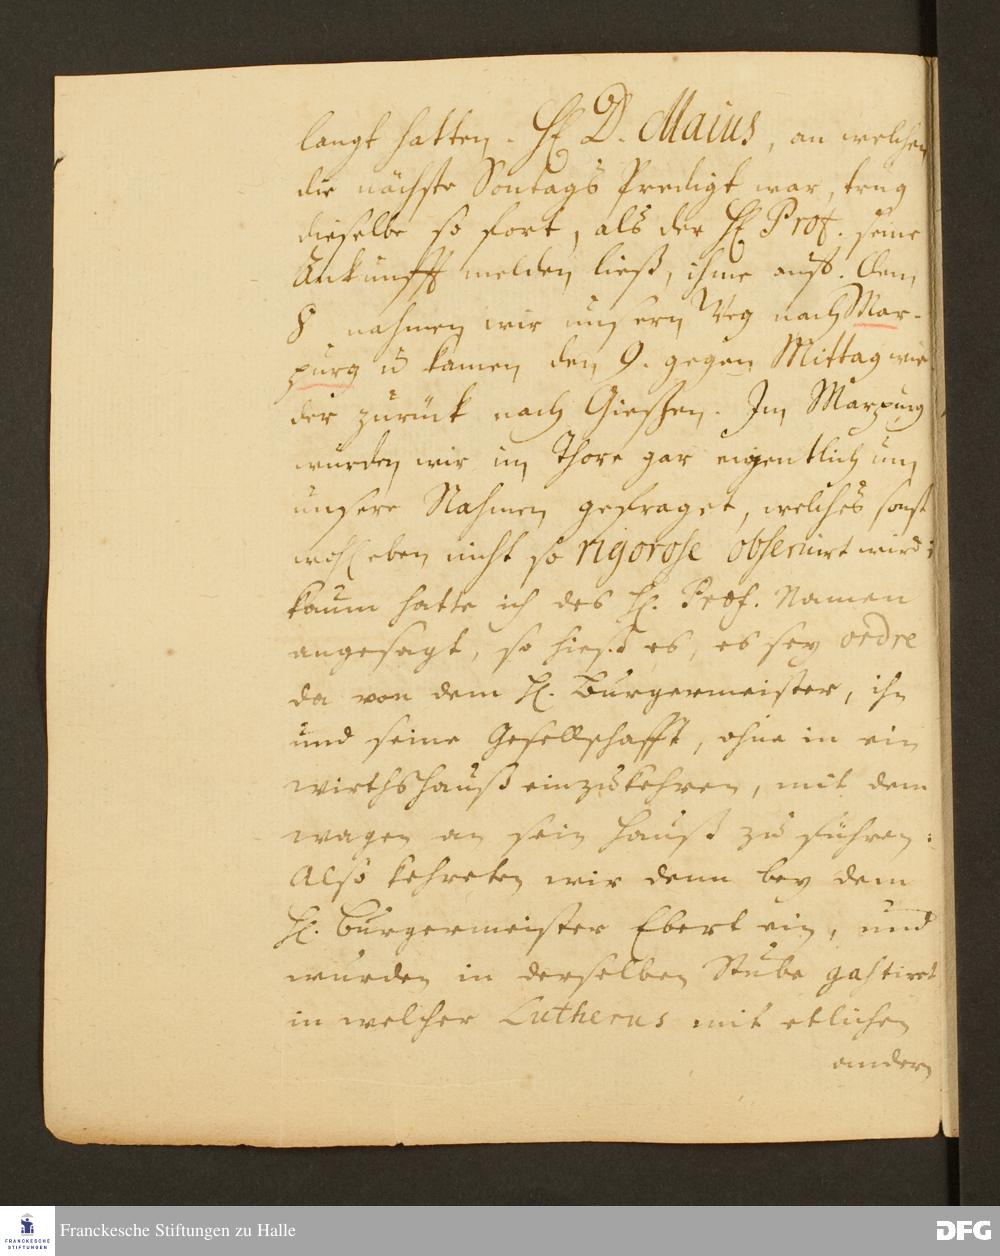 langt hatten. H. D. Maius, an welchen
die nächste Sontags Predigt war, trug
dieselbe so fort, als der H. Prof. seine
Ankunfft melden ließ, ihme auf. Den
8 nahmen wir unsern Weg nach Mar-
purg u kamen den 9. gegen Mittag wie
der zurück nach Gießen. In Marpurg
wurden wir im Thore gar eigentlich um
unsere Nahmen gefraget, welches sonst
wohl eben nicht so rigorose observirt wird:
kaum hatte ich des H. Prof. Namen
angesagt, so hieß es, es sey ordre
da von dem H. Burgermeister, ihn
und seine Gesellschafft, ohne in ein
wirthshauß einzukehren, mit dem
wagen an sein Hauß zu führen:
Also kehreten wir denn bey dem
H. Burgermeister Ebert ein, und
wurden in derselben Stube gastiret
in welcher Lutherus mit etlichen
andern
Franckesche Stiftungen zu Halle
FRANCKESCHE
STIFTUNGEN
DFG